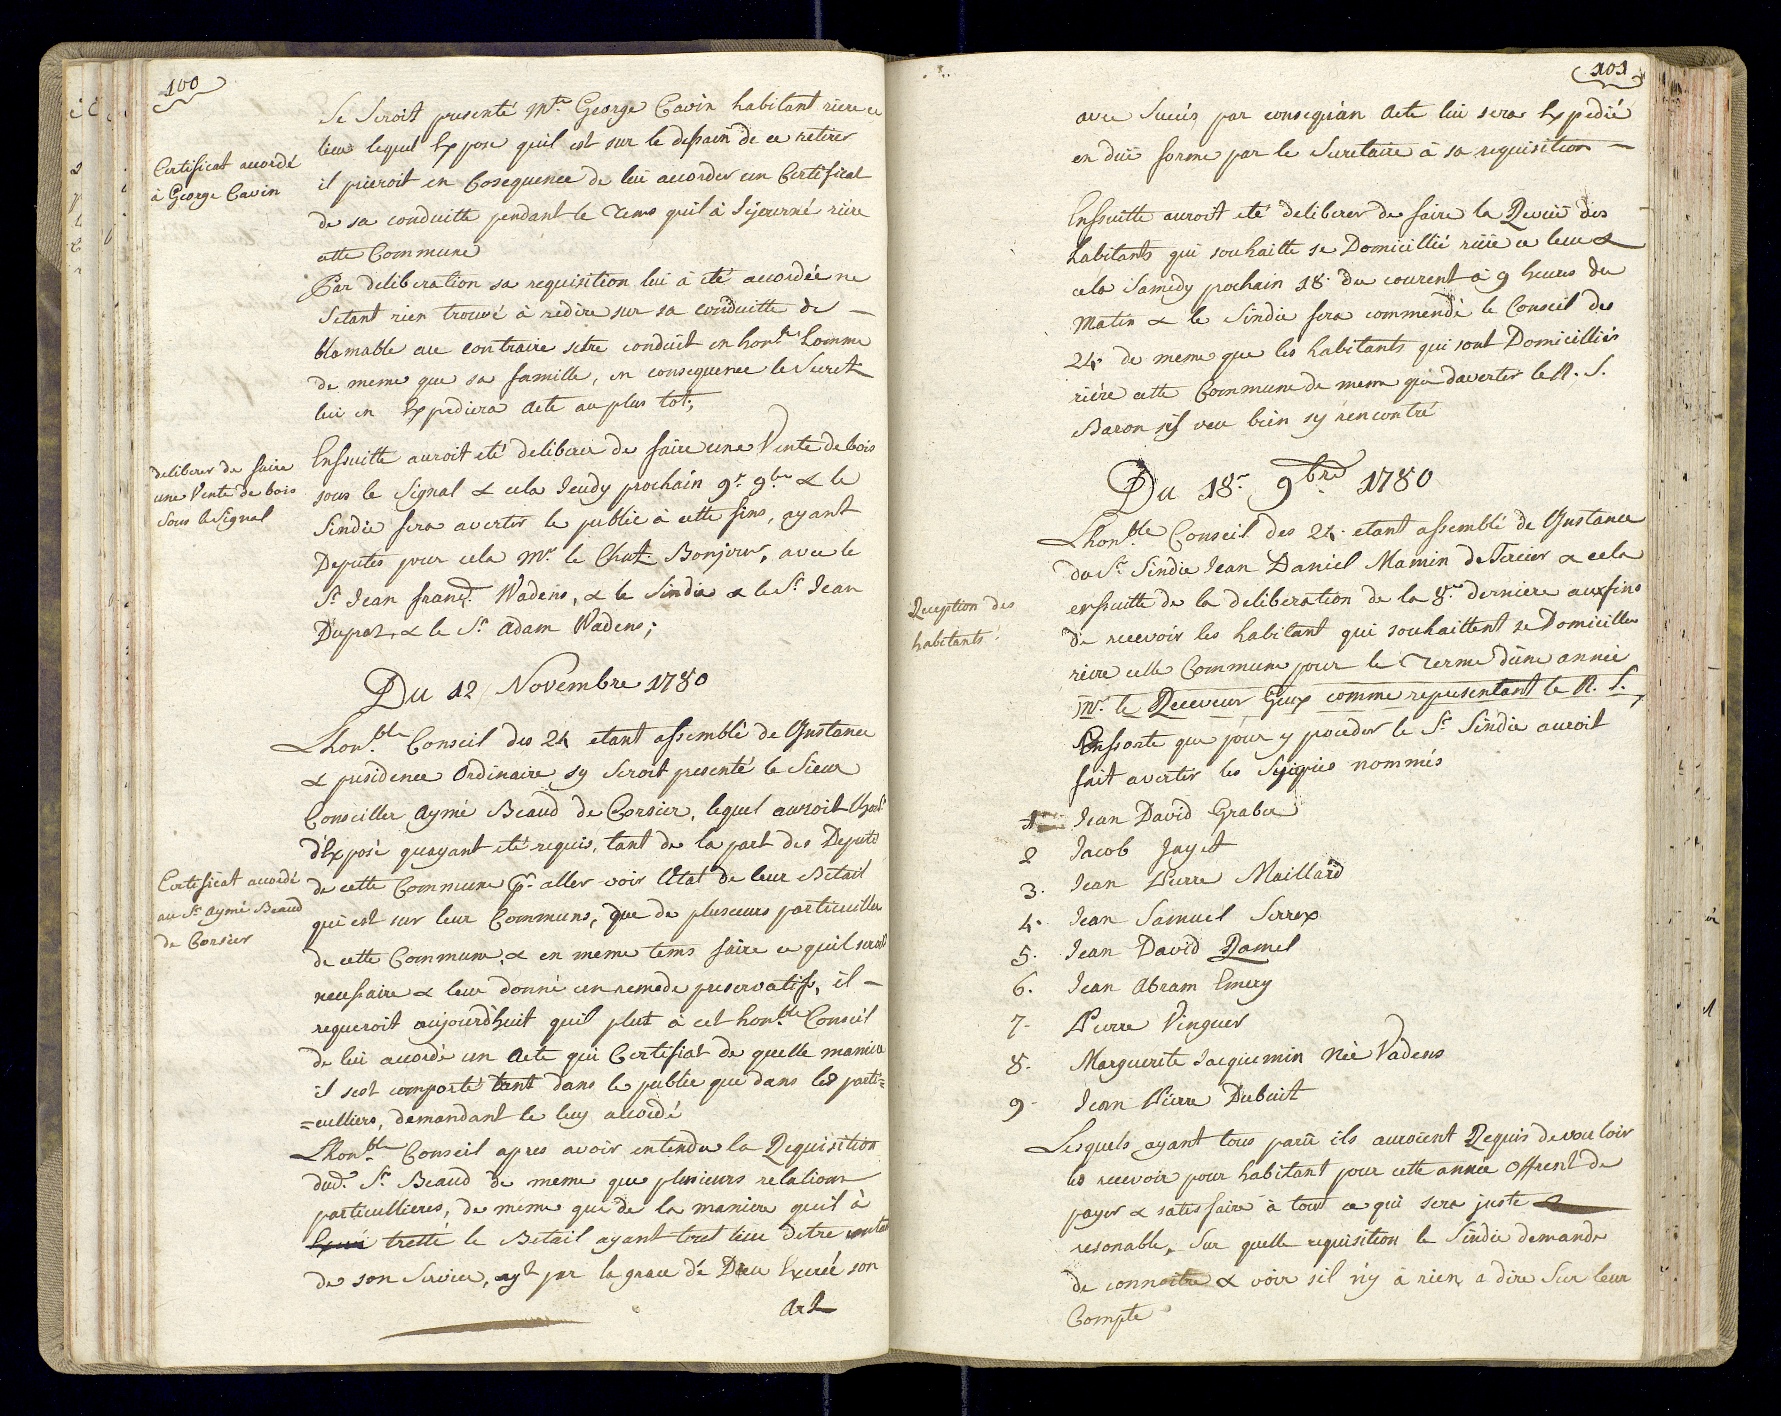 100
Certificat accordé
à George Cavin
Se Seroit presenté Mtre George Cavin habitant riere ce
lieu lequel Expose quil est sur le dessain de ce retirer
il prieroit en Cosequence de lui accorder un Certificat
de sa conduitte pendant le Tems quil à Sejourné riere
cette Commune
Par deliberation sa requisition lui à eté accordée ne
setant rien trouvé à redire sur sa conduitte de —
blamable au contraire setre conduit en honble homme
de meme que sa famille, en consequence le Secret.
lui en Expediera Acte au plus tot;
deliberer de faire
une Vente de bois
sous le Signal
Ensuitte auroit eté deliberer de faire une Vente de bois
sous le Signal & cela Jeudy prochain 9e 9bre & le
Sindic fera avertir le public à cette fins, ayant
Deputés pour cela Mr. le Chat. Bonjour, avec le
Sr Jean franç. Wadens, & le Sindic & le Sr Jean
Dupraz, & le Sr Adam Wadens;
Du 12 Novembre 1780
Lhonble Conseil des 24 etant assemblé de Gnstance
& presidence Ordinaire sy Seroit presenté le Sieur
Conseiller Aymé Beaud de Corsier, lequel auroit
d'Exposé quayant eté requis, tant de la part des Deputé
Certificat accordé
au Sr Aymé Beaud
de Corsier
de cette Commune pr. aller voir l'Etat de leur Betail
qui est sur leur Communs, que de plusieurs particuiller
de cette Commune, & en meme tems faire ce quil seroit
necessaire & leur donné un remede preservatif, il —
requeroit aujourdhuit quil plut à cet honble Conseil
de lui accordé un Acte qui Certifiat de quelle maniere
il sest comporté tant dans le public que dans les parti=
=culliers, demandant le luy accordé
Lhonble Conseil apres avoir entendu la Requisition
dud. Sr Beaud de meme que plusieurs relation
particullieres, de meme que de la maniere quil à
tretté le Betail ayant tout lieu detre content
de son Service, ayt par la grace de Dieu Exercé son
Art
101
avec Succés, par consequan Acte lui sera Expedié
en duë forme par le Secretaire à sa requisition —
Ensuitte auroit eté deliberer de faire la Reveuë des
habitants qui souhaitte se Domicillié riere ce lieu &
cela Samedy prochain 18. du courent à 9 heures du
Matin & le Sindic fera commendé le Conseil des
24. de meme que les habitants qui sont Domicilliés
riére cette Commune de meme que daverter le N. S.
Baron sil veu bien sy rencontré
Du 18e 9bre 1780
Lhonble Conseil des 24. etant assemblé de Gnstance
du Sr Sindic Jean Daniel Mamin de Tercier & cela
ensuitte de la deliberation de la 8e derniere aux fins
Reception des
habitants.
de recevoir les habitant qui souhaittent se Domicillier
riere cette Commune pour le Terme dune année
Mr. le Receveur Geux comme representant le N. S.
Ensorte que pour y proceder le Sr Sindic auroit
fait avertir les Sypiés nommés
1 Jean David Graber
2 Jacob Jayet
3. Jean Pierre Maillard
4. Jean Samuel Serrex
5. Jean David Ramel
6. Jean Abram Emery
7. Pierre Vinguer
8. Marguerite Jacquemin Née Vadens
9. Jean Pierre Dubuit
Lesquels ayant tous parû ils auroient Requis de vouloir
les recevoir pour habitant pour cette année Offrent de
payer & satisfaire à tout ce qui sera juste &
resonable, Sur quelle requisition le Sindic demande
de connoitre & voir sil n'y à rien a dire Sur leur
Compte